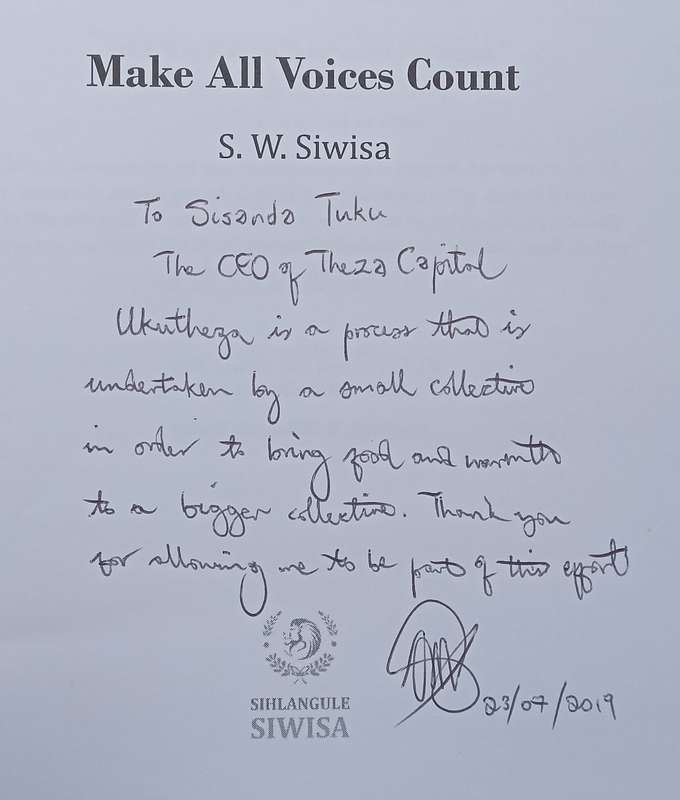 Make All Voices Count
S. W. Siwisa
To Sisanda Tuku
The CEO of Theza Capital
Ukutheza is a process that is
undertaken by a small collective
in order to bring food and warmth
to a bigger collective. Thank you
for allowing me to be part of this effort
23/07/2019
SIHLANGULE
SIWISA